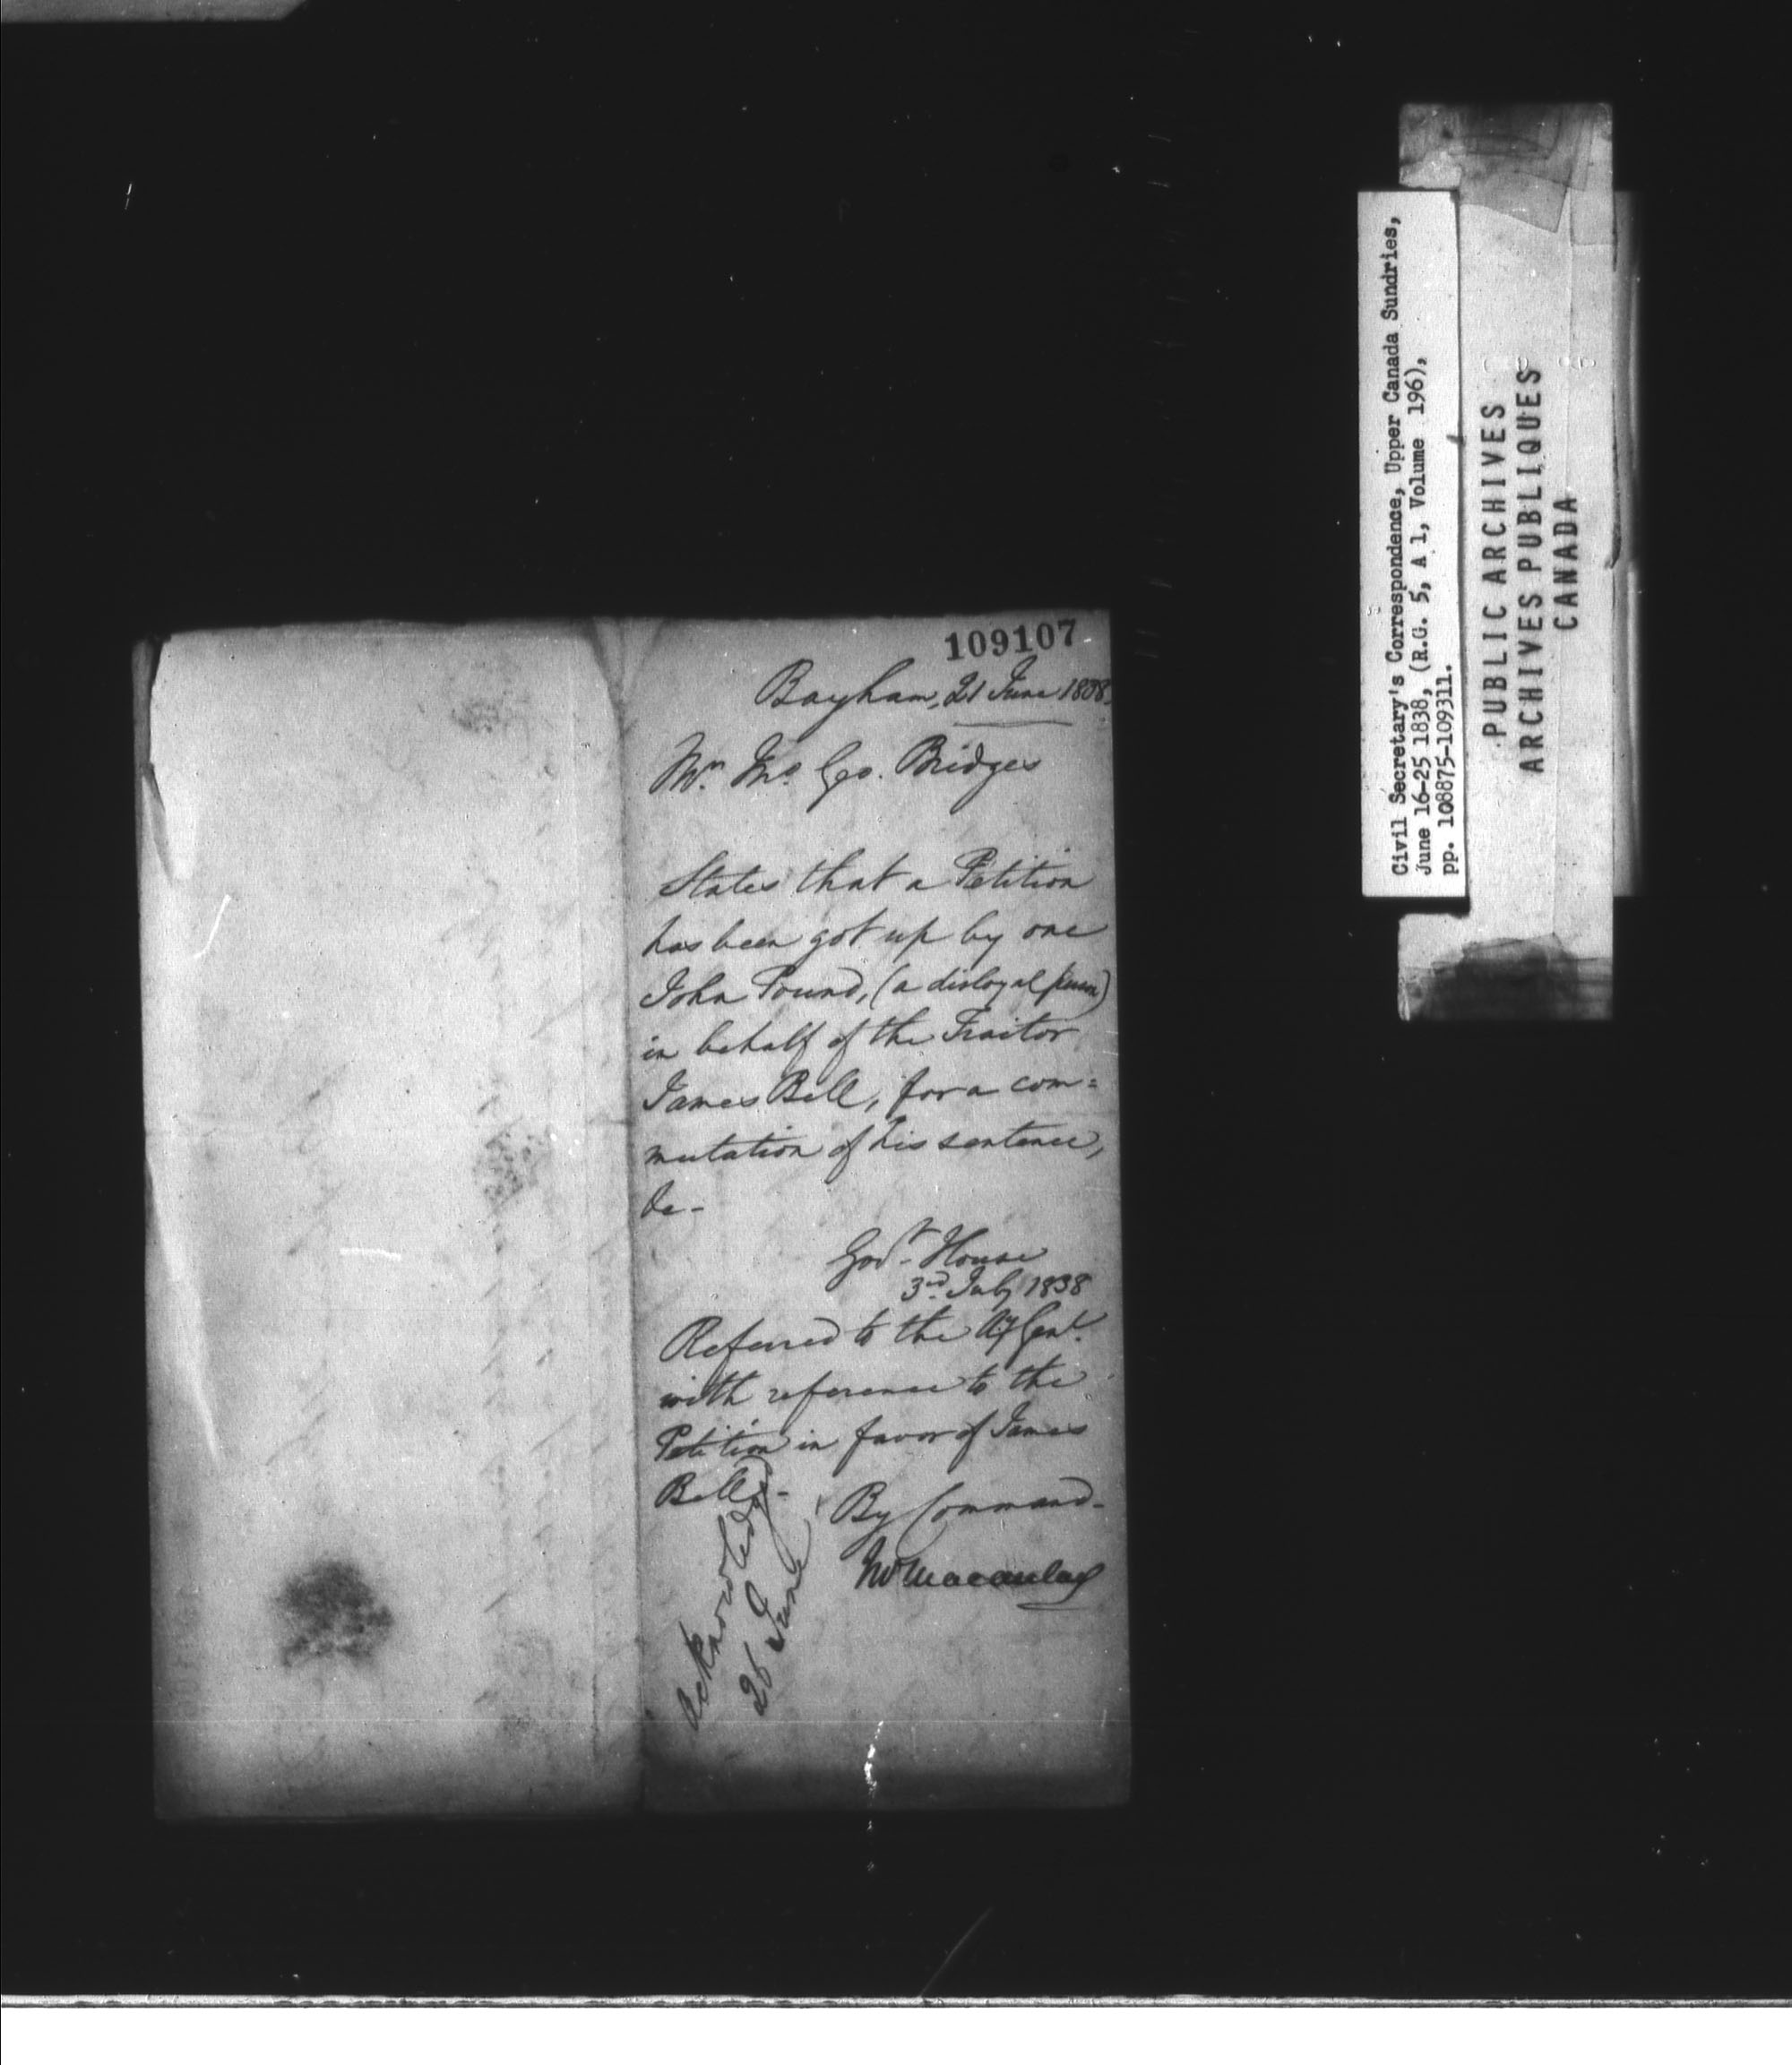 109107
Bayham, 21 June 1838.
Wm. Jno. Geo. Bridges
States that a Petition
has been got up by one
John Pound, (a disloyal person)
in behalf of the Traitor
James Bell, for a com=
mutation of his sentence,
&c-
Govt. House
3rd. July 1838
Referred to the Ay Genl.
with reference to the
Petition in favor of James
Bell-
By Command-
Jno Macaulay
Acknowledged
26 June
Civil Secretary's Correspondence, Upper Canada Sundries,
June 16-25 1838, (R.G. 5, A 1, Volume 196),
pp. 108875-109311.
PUBLIC ARCHIVES
ARCHIVES PUBLIQUES
CANADA